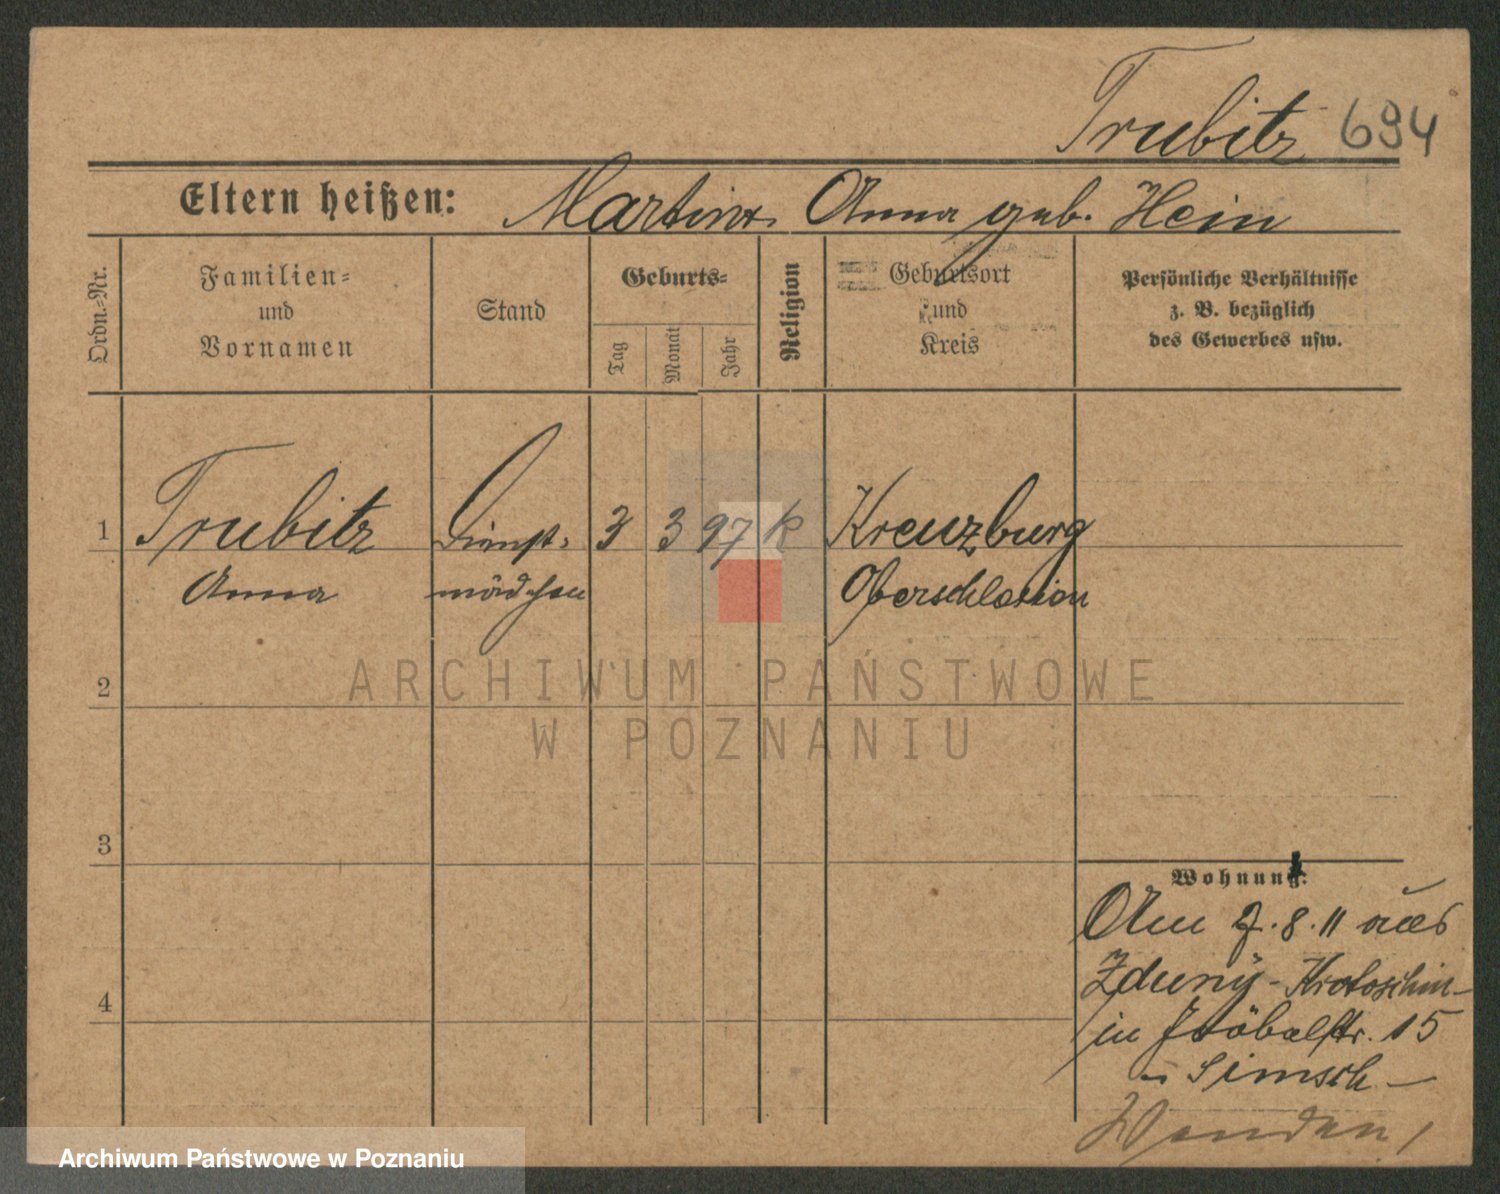 Trubitz 694
Eltern heißen: Martin u. Anna geb. Hein
Ordn.-Nr.
Familien-
und
Vornamen
Stand
Geburts-
Tag
Monat
Jahr
Religion
Geburtsort
und
Kreis
Persönliche Verhältnisse
z. B. bezüglich
des Gewerbes usw.
1 Trubitz Dienst- 3 3 97 k Kreuzburg
Anna mädchen Oberschlesien
2
ARCHIWUM PAŃSTWOWE
W POZNANIU
3
Wohnung:
Am 2.8.11 aus
Zduny - Krotoschin -
4
in Fröbelstr. 15
Simsch -
Wenden!
Archiwum Państwowe w Poznaniu